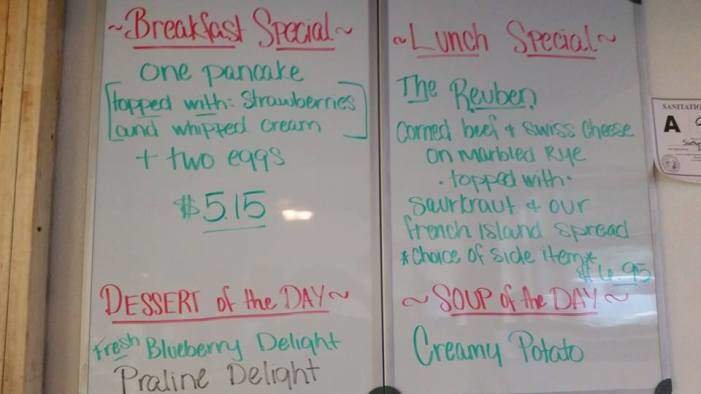 ~Breakfast Special~
one pancake
[topped with: Strawberries
and whipped cream]
+ two eggs
$5.15
DESSERT of the DAY~
Fresh Blueberry Delight
Praline Delight
~Lunch Special~
The Reuben
Corned beef + Swiss Cheese
on Marbled Rye
·topped with·
Saurkraut + our
french Island spread
*Choice of side item*
$6.95
~SOUP of the DAY~
Creamy Potato
A